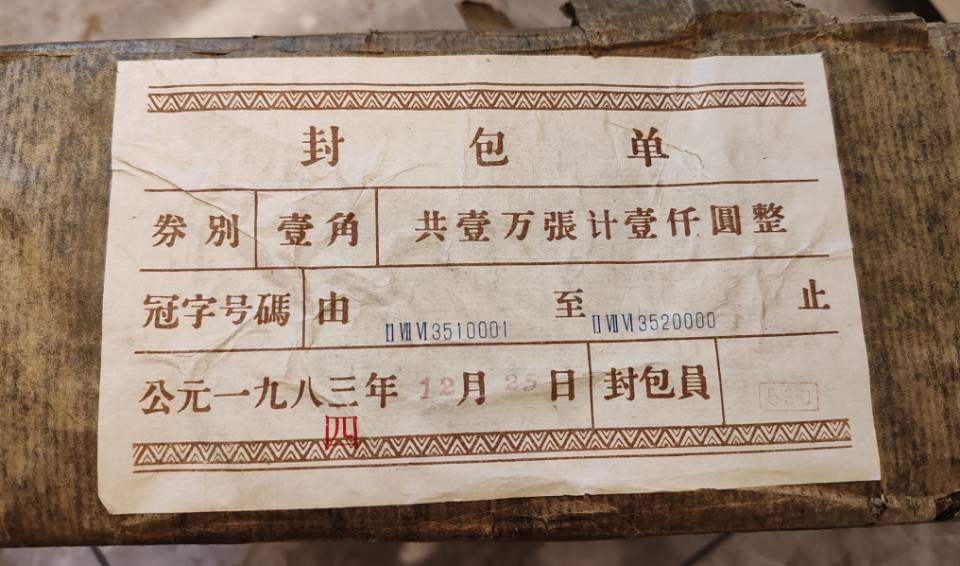 封包单
券别 壹角 共壹万張计壹仟圓整
冠字号碼 由 ⅡⅦⅥ3510001 至 ⅡⅦⅥ3520000 止
公元一九八三年 12月 25日 封包員
四